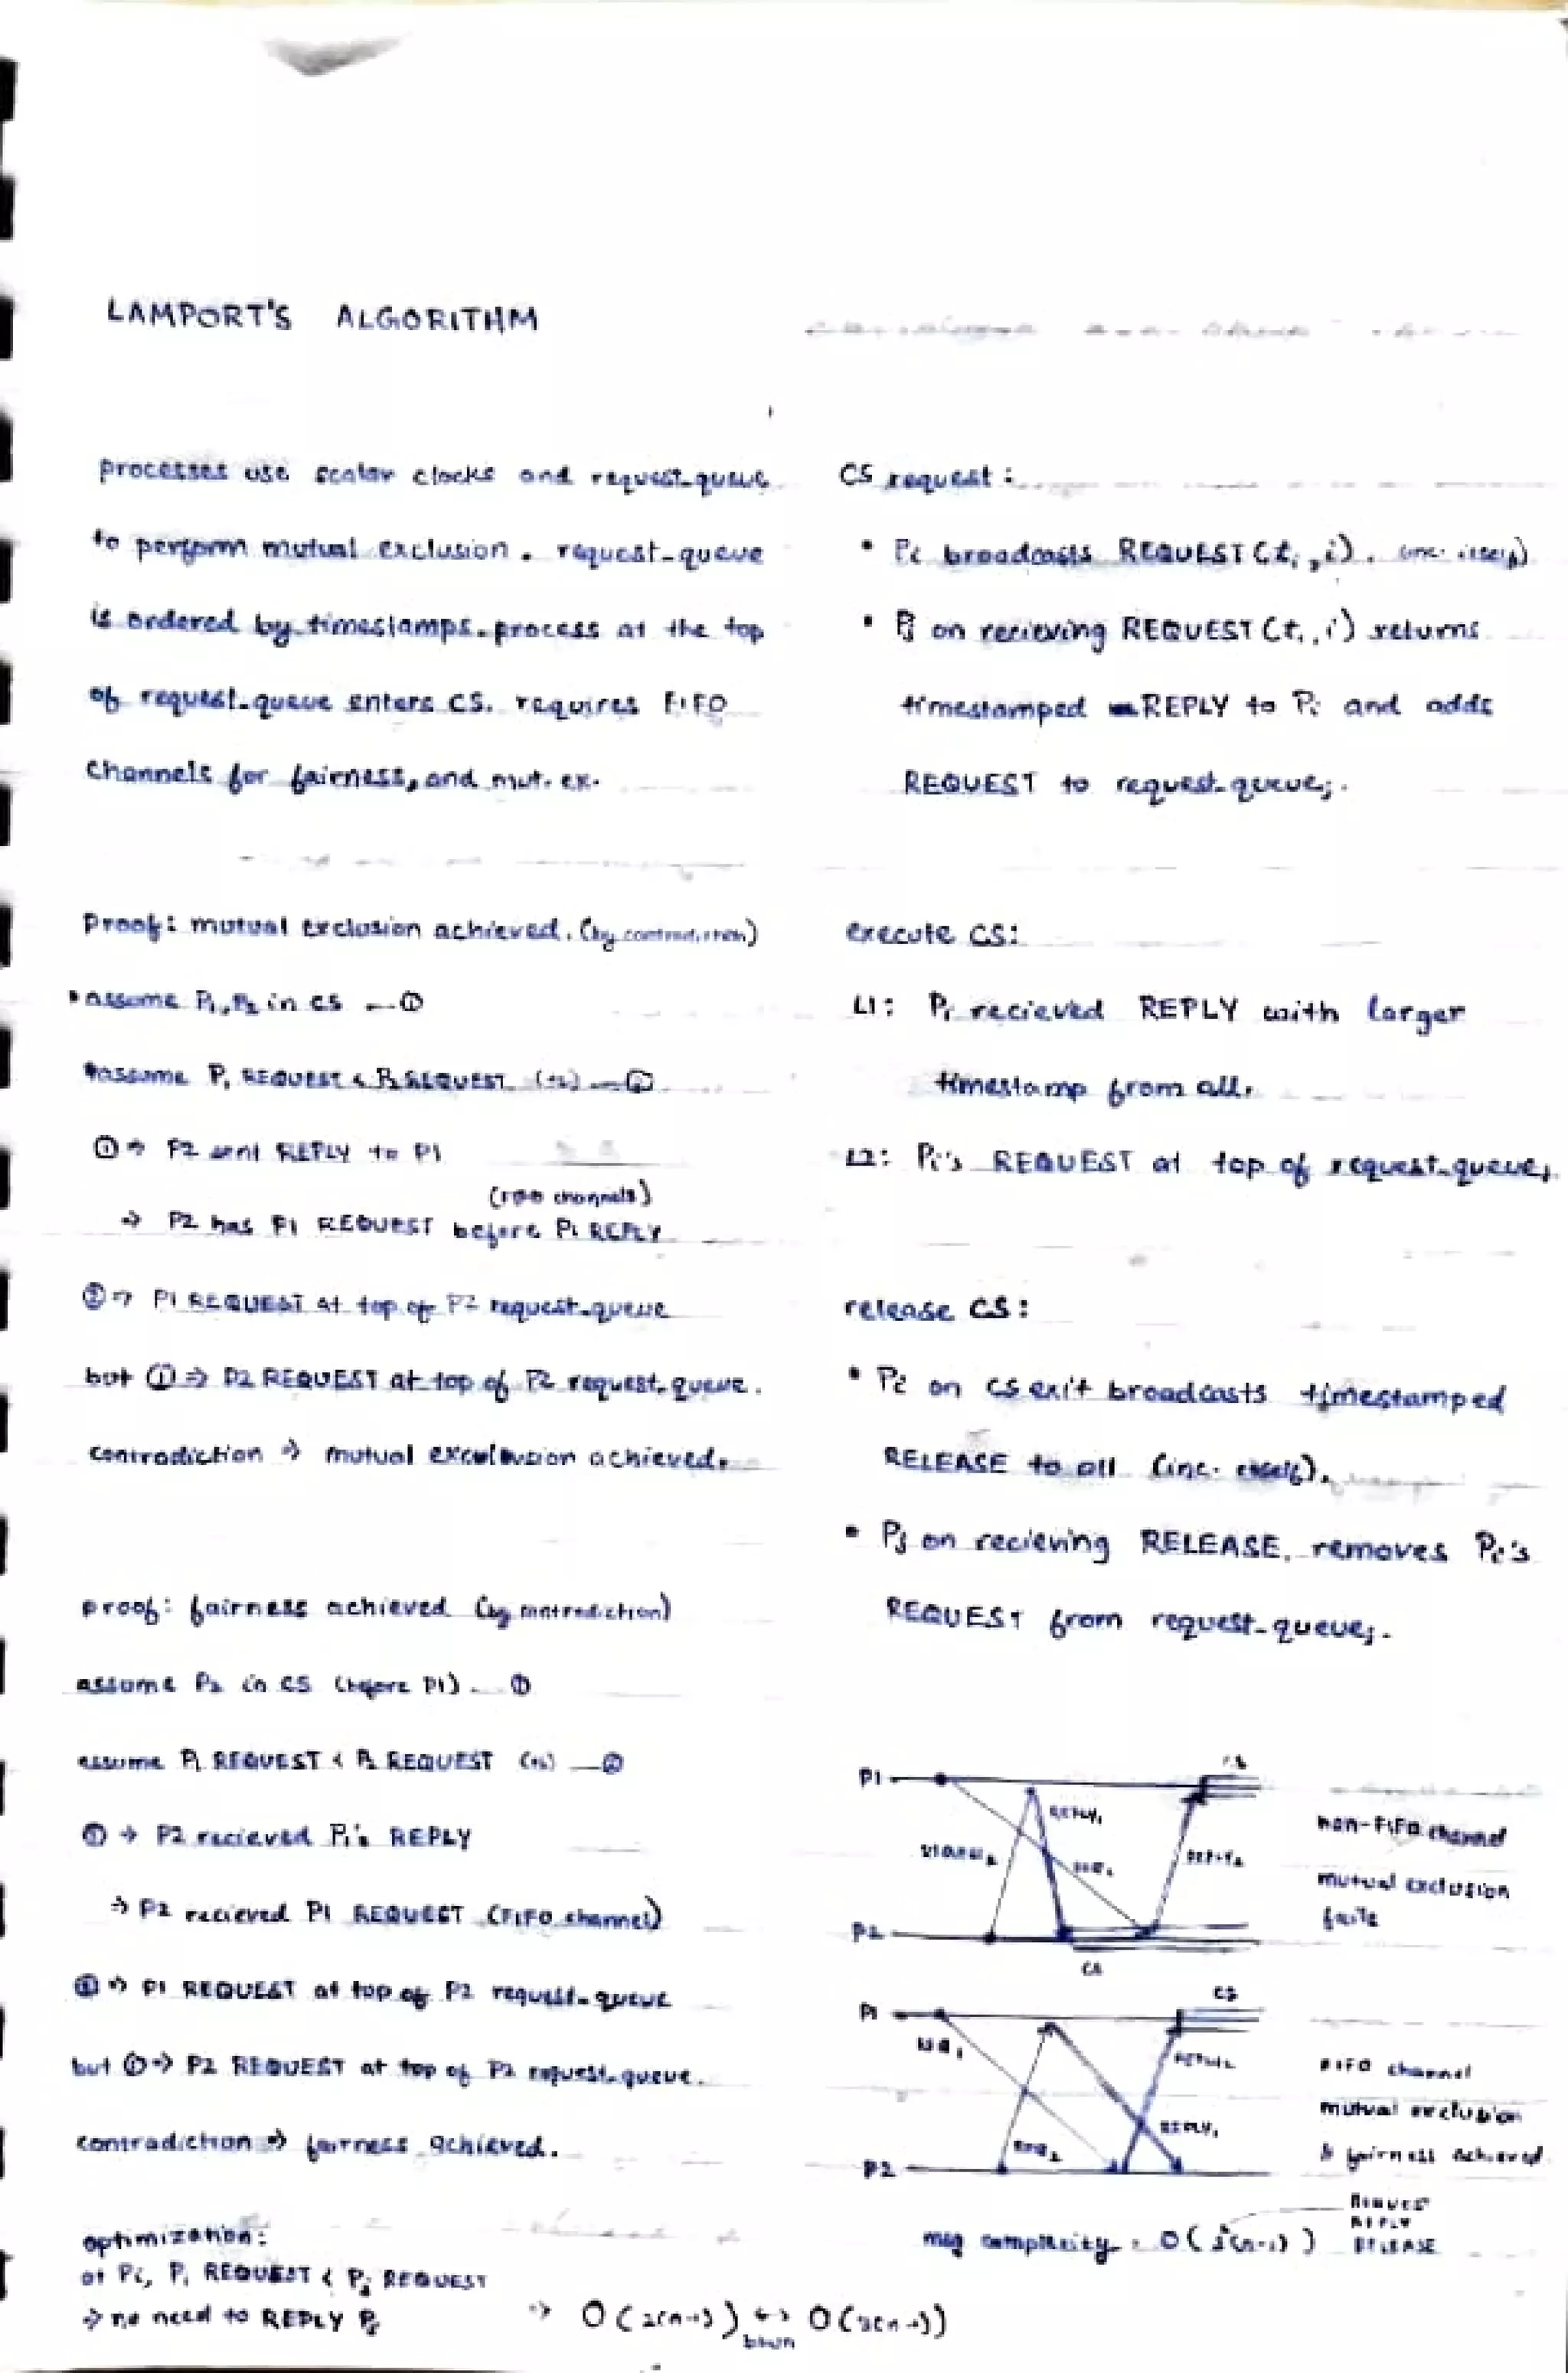 LAMPORT'S ALGORITHM
processes use scalar clocks and request_queue
to perform mutual exclusion. request_queue
is ordered by timestamps. process at the top
of request_queue enters CS. requires FIFO
channels for fairness, and mut. ex.
proof: mutual exclusion achieved. (by contradiction)
• assume P1, P2 in CS — ①
• assume P1 REQUEST < P2 REQUEST (ts) — ②
① ⇒ P2 sent REPLY to P1
(FIFO channels)
⇒ P2 has P1 REQUEST before P1 REPLY
② ⇒ P1 REQUEST at top of P2 request_queue
but ① ⇒ P2 REQUEST at top of P2 request_queue.
contradiction ⇒ mutual achieved.
proof: fairness achieved (by contradiction)
assume P2 in CS (before P1) — ①
assume P1 REQUEST < P2 REQUEST (ts) — ②
① ⇒ P2 recieved P1's REPLY
⇒ P2 recieved P1 REQUEST (FIFO channel)
② ⇒ P1 REQUEST at top of P2 request_queue
but ① ⇒ P2 REQUEST at top of P2 request_queue.
contradiction ⇒ fairness achieved.
optimization:
at Pi, Pi REQUEST < Pj REQUEST
⇒ no need to REPLY Pj
⇒ O(2(n-1)) ↔ O(3(n-1))
btwn
CS request:
• Pi broadcasts REQUEST(ti, i). (inc. itself)
• Pj on recieving REQUEST(ti, i) returns
timestamped REPLY to Pi and adds
REQUEST to request_queuej.
execute CS:
L1: Pi recieved REPLY with larger
timestamp from all.
L2: Pi's REQUEST at top of request_queuei.
release CS:
• Pi on CS exit broadcasts timestamped
RELEASE to all (inc. itself).
• Pj on recieving RELEASE, removes Pi's
REQUEST from request_queuej.
P1
CS
REPLY1
REQ1
REPLY2
P2
CS
non-FIFO channel
mutual exclusion
fails
P1
CS
REQ1
REPLY2
REQ2
REPLY1
P2
FIFO channel
mutual exclusion
& fairness achieved
msg complexity: O(3(n-1))
REQUEST
REPLY
RELEASE